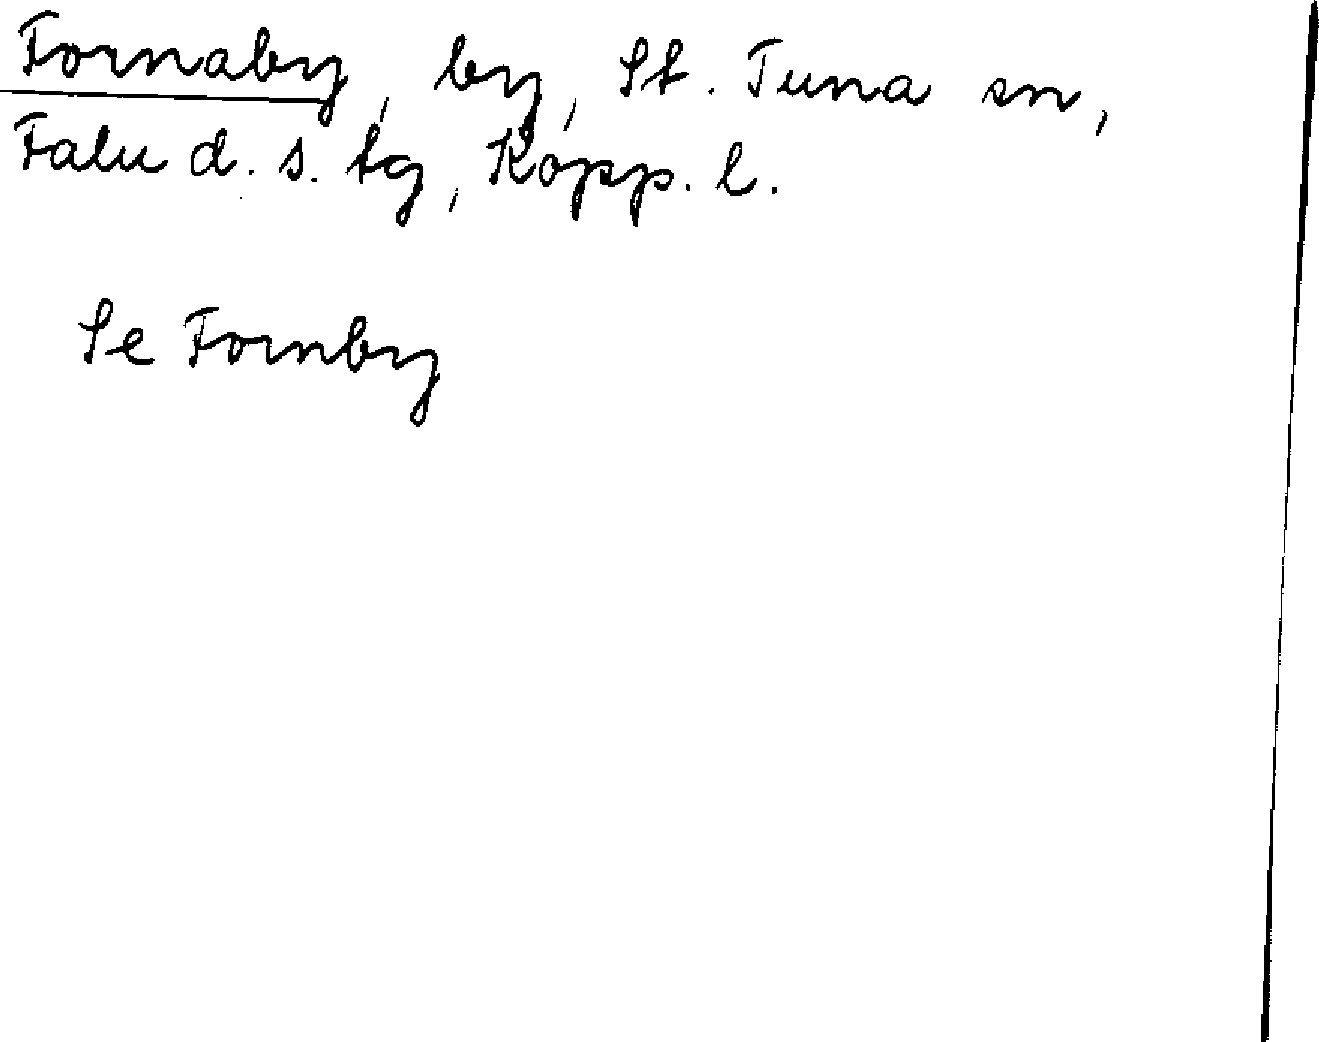 Fornaby, by, St. Tuna sn,
Falu d. s. tg, Kopp. l.
Se Fornby